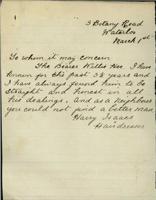 3 Botany Road
Waterloo
March 1st
To whom it may concern
The Bearer Willie Hee. I have
known for the past 35 years and
I have always found him to be
straight and honest in all
his dealings, and as a Neighbour
you could not find a better man
Harry Isaacs
Hairdresser